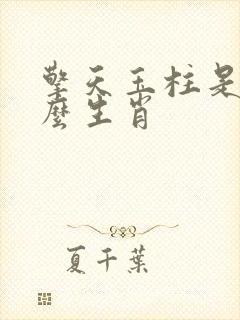 擎天玉柱是
麼生肖
夏千葉